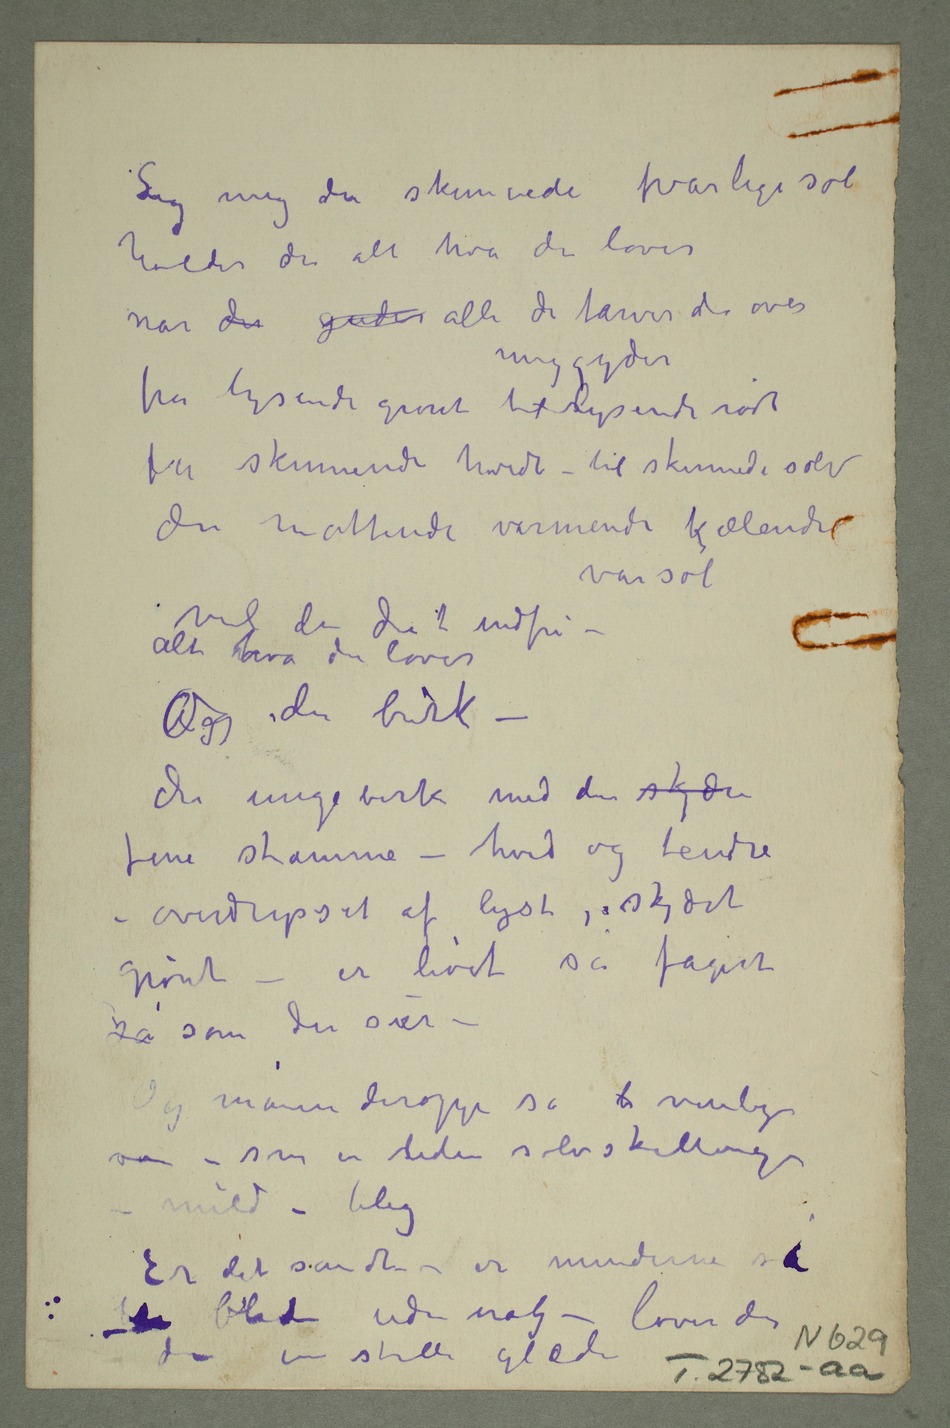 Sig mig du skinnede frvarlige sol
holder du alt hva du lover
når du gyder alle de farver du over
mig gyder
fra lysende grønt til lysende rødt
fra skinnende hvidt – til skinnede sølv
du mættende varmende kjælende
vår sol
vil du det indfri –
alt hva du lover
Og du birk –
du unge birk med den skjære
fine stamme – hvid og tendre
– overdrysset af lyst, skjært
grønt – er livet så fagert
så som du siær –
Og månen deroppe så venlig
– som en liden sølvskilling
– mild – bleg
Er det sandt – er minderne så
blide uden nag – lover du
du en stille glæde
N 629
T. 2782-aa